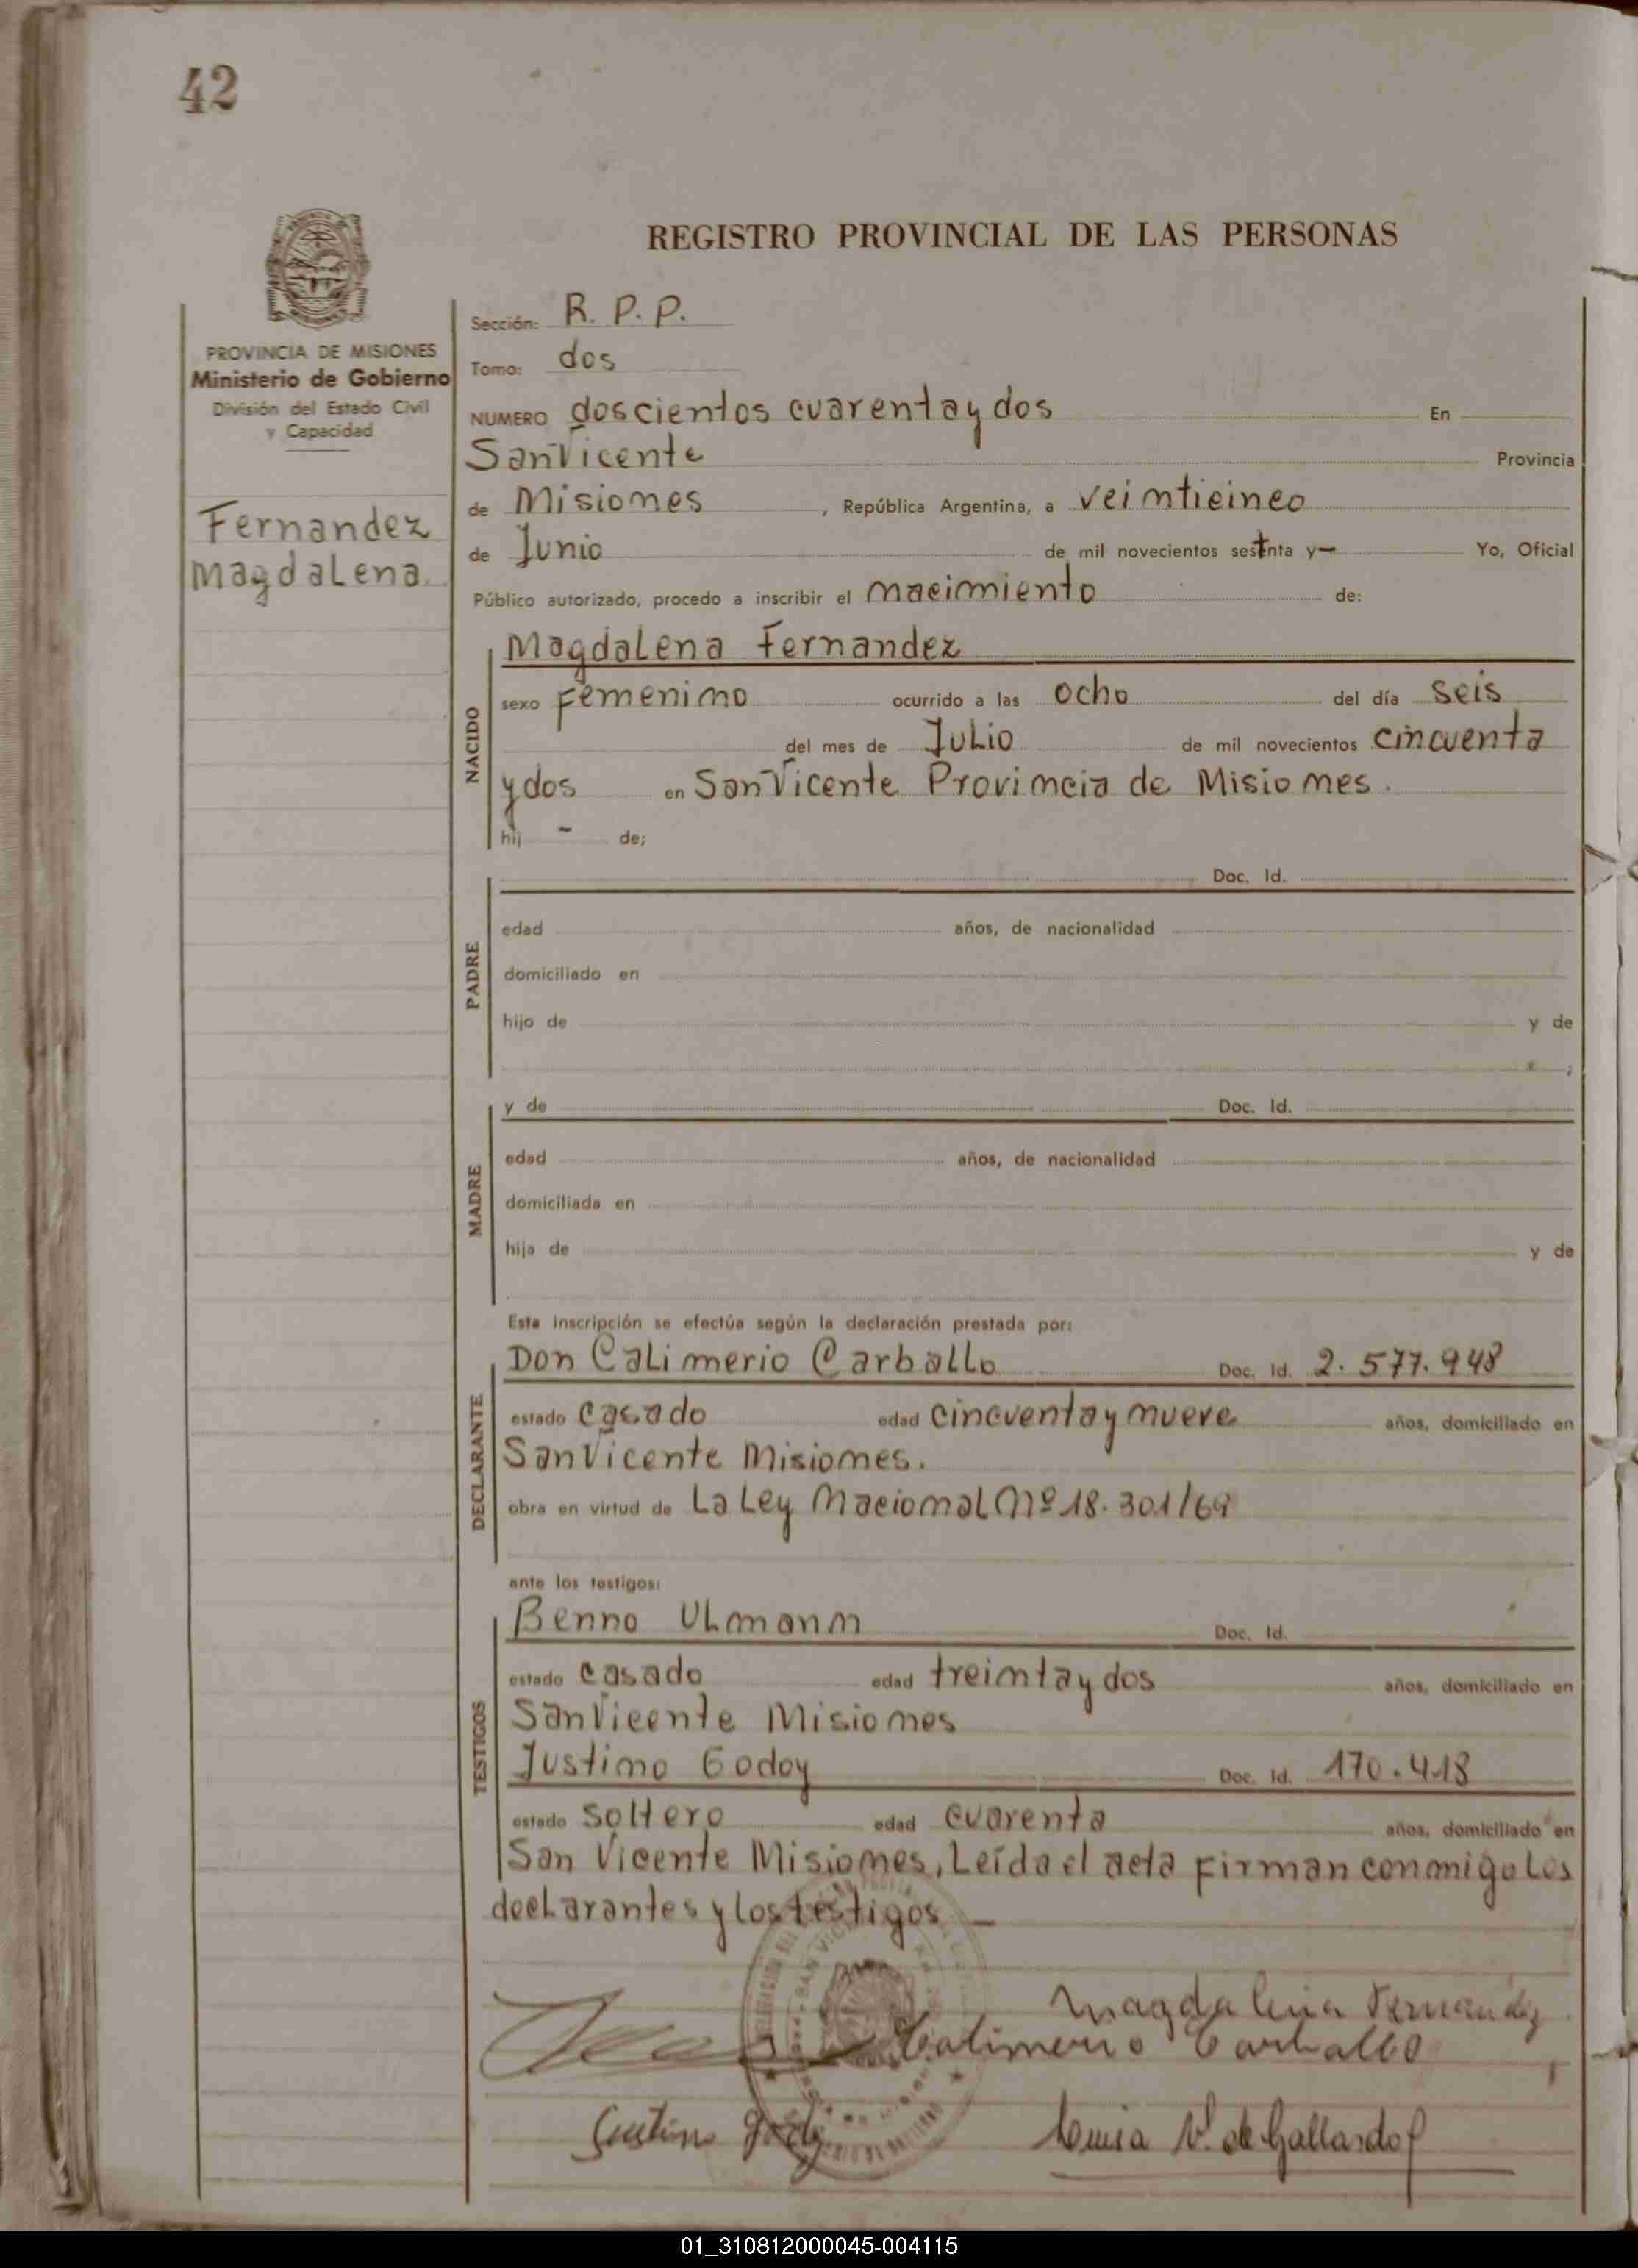 42
REGISTRO PROVINCIAL DE LAS PERSONAS
PROVINCIA DE MISIONES
Ministerio de Gobierno
División del Estado Civil
y Capacidad
Fernandez
Magdalena
Sección: R. P. P.
Tomo: dos
NUMERO doscientos cuarenta y dos En
San Vicente Provincia
de Misiones, República Argentina, a veinticinco
de Junio de mil novecientos setenta y — Yo, Oficial
Público autorizado, procedo a inscribir el nacimiento de:
NACIDO
Magdalena Fernandez
sexo Femenino ocurrido a las ocho del día seis
del mes de Julio de mil novecientos cincuenta
y dos en San Vicente Provincia de Misiones.
hij - de;
PADRE
Doc. Id.
edad años, de nacionalidad
domiciliado en
hijo de y de
;
MADRE
y de Doc. Id.
edad años, de nacionalidad
domiciliada en
hija de y de
Esta inscripción se efectúa según la declaración prestada por:
DECLARANTE
Don Calimerio Carballo Doc. Id. 2.577.948
estado casado edad cincuenta y nueve años, domiciliado en
San Vicente Misiones.
obra en virtud de La Ley Nacional Nº 18.301/69
ante los testigos:
TESTIGOS
Benno Ulmann Doc. Id.
estado casado edad treinta y dos años, domiciliado en
San Vicente Misiones
Justino Godoy Doc. Id. 170.418
estado soltero edad cuarenta años, domiciliado en
San Vicente Misiones, Leída el acta firman conmigo los
declarantes y los testigos —
Magdalena Fernandez
Calimerio Carballo
Justino Godoy
V. de Gallardo
01_310812000045-004115